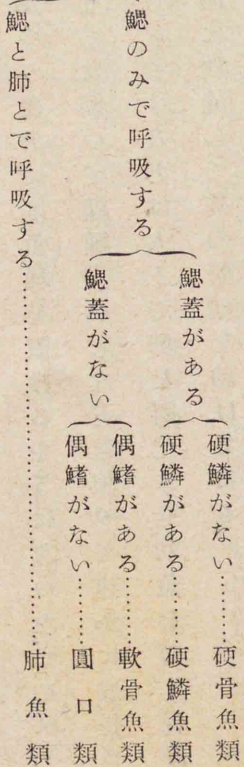 鰓のみで呼吸する
鰓蓋がある
硬鱗がない………硬骨魚類
硬鱗がある………硬鱗魚類
鰓蓋がない
偶鰭がある………軟骨魚類
偶鰭がない………圓口類
鰓と肺とで呼吸する………肺魚類